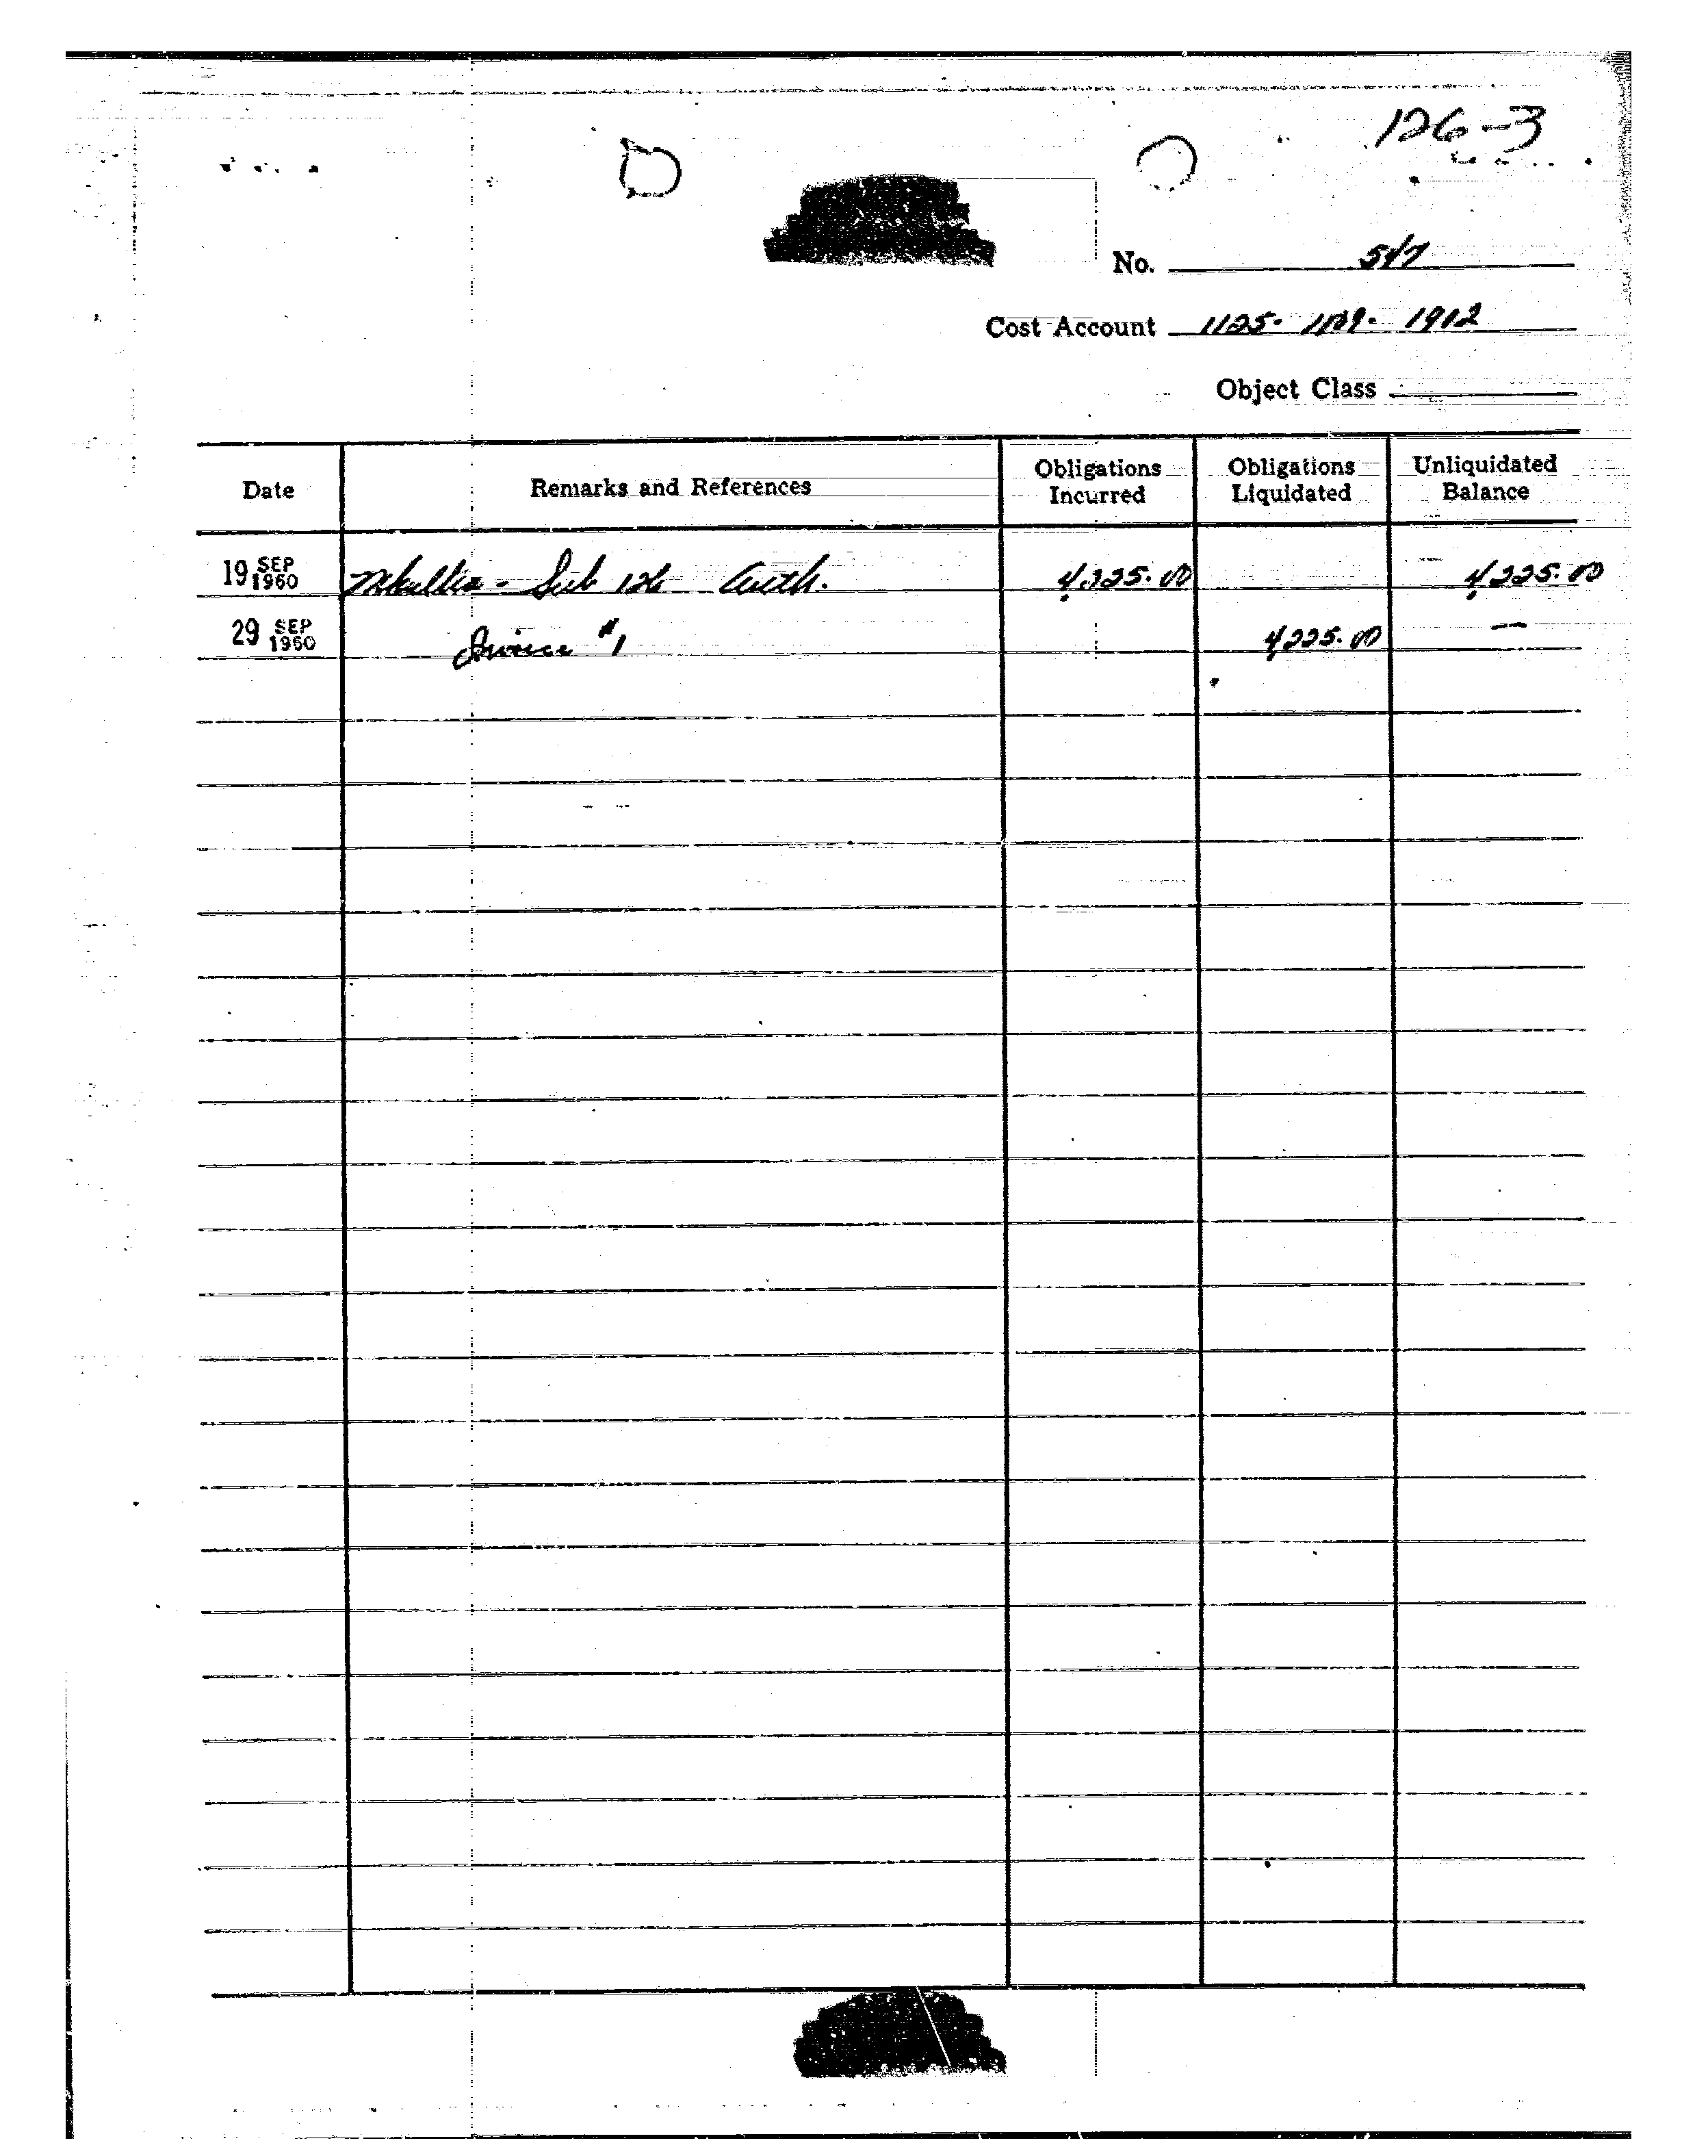 126-3
No. 547
Cost Account 1125- 1009- 1912
Object Class
Date Remarks and References Obligations Incurred Obligations Liquidated Unliquidated Balance
19 SEP 1960 Mkultra - Sub 126 Auth. 4,225.00 4,225.00
29 SEP 1960 Invoice #1 4,225.00 —